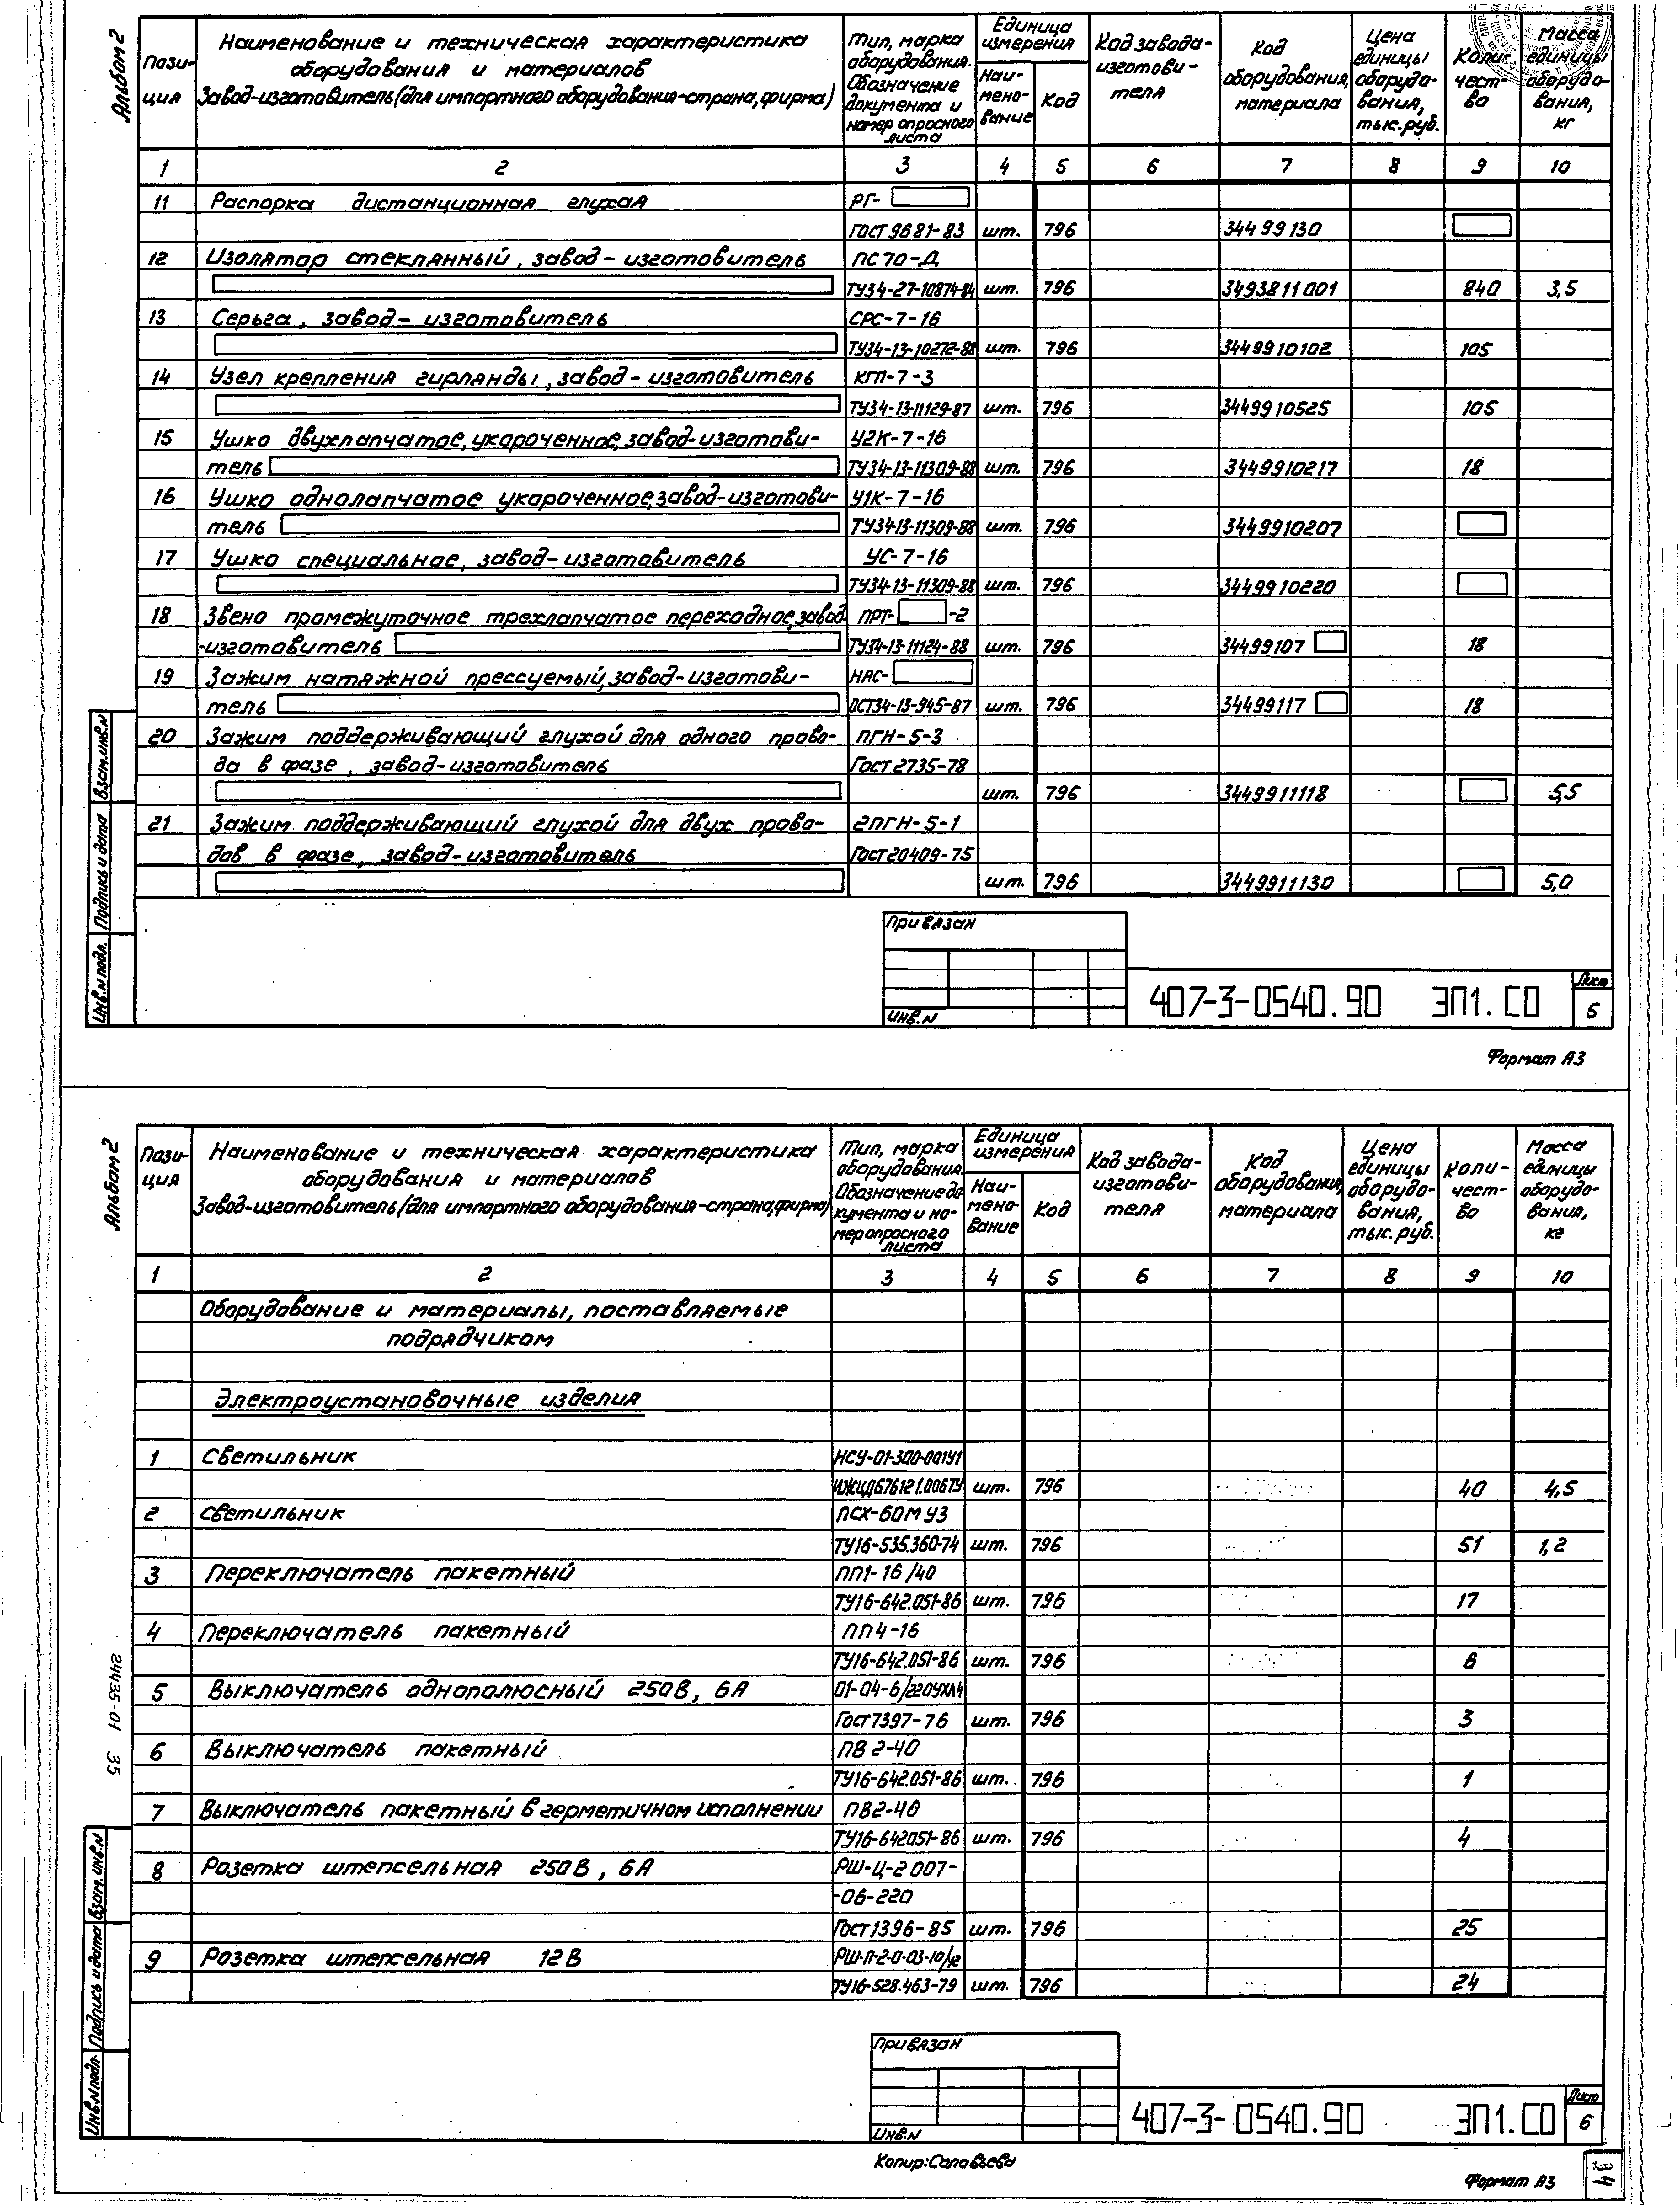 Альбом 2
Пози-
ция
Наименование и техническая характеристика
оборудования и материалов
Завод-изготовитель (для импортного оборудования-страна, фирма)
Тип, марка
оборудования.
Обозначение
документа и
номер опросного
листа
Единица
измерения
Наи-
мено-
вание
Код
Код завода-
изготови-
теля
Код
оборудования,
материала
Цена
единицы
оборудо-
вания,
тыс. руб.
Коли-
чест-
во
Масса
единицы
оборудо-
вания,
кг
1 2 3 4 5 6 7 8 9 10
11 Распорка дистанционная глухая РГ-
ГОСТ 9681-83 шт. 796 34499130
12 Изолятор стеклянный, завод-изготовитель ПС 70-Д
ТУ34-27-10874-84 шт. 796 3493811001 840 3,5
13 Серьга, завод-изготовитель СРС-7-16
ТУ34-13-10272-88 шт. 796 3449910102 105
14 Узел крепления гирлянды, завод-изготовитель КГП-7-3
ТУ34-13-11129-87 шт. 796 3449910525 105
15 Ушко двухлапчатое, укороченное, завод-изготови- У2К-7-16
тель ТУ34-13-11309-88 шт. 796 3449910217 18
16 Ушко однолапчатое укороченное, завод-изготови- У1К-7-16
тель ТУ34-13-11309-88 шт. 796 3449910207
17 Ушко специальное, завод-изготовитель УС-7-16
ТУ34-13-11309-88 шт. 796 3449910220
18 Звено промежуточное трехлапчатое переходное, завод- ПРТ- -2
-изготовитель ТУ34-13-11124-88 шт. 796 34499107 18
19 Зажим натяжной прессуемый, завод-изготови- НАС-
тель ОСТ34-13-945-87 шт. 796 34499117 18
20 Зажим поддерживающий глухой для одного прово- ПГН-5-3
да в фазе, завод-изготовитель ГОСТ 2735-78
шт. 796 3449911118 5,5
21 Зажим поддерживающий глухой для двух прово- 2ПГН-5-1
дов в фазе, завод-изготовитель ГОСТ 20409-75
шт. 796 3449911130 5,0
Инв.N подл. Подпись и дата Взам.инв.N
Привязан
Инв.N
407-3-0540.90 ЭП1.СО
Лист
5
Формат А3
Альбом 2
Пози-
ция
Наименование и техническая характеристика
оборудования и материалов
Завод-изготовитель (для импортного оборудования-страна, фирма)
Тип, марка
оборудования.
Обозначение до
кумента и но-
мер опросного
листа
Единица
измерения
Наи-
мено-
вание
Код
Код завода-
изготови-
теля
Код
оборудования,
материала
Цена
единицы
оборудо-
вания,
тыс. руб.
Коли-
чест-
во
Масса
единицы
оборудо-
вания,
кг
1 2 3 4 5 6 7 8 9 10
Оборудование и материалы, поставляемые
подрядчиком
Электроустановочные изделия
1 Светильник НСУ-01-300-001У1
ИЖЦД676121.006ТУ шт. 796 40 4,5
2 Светильник ПСХ-60М У3
ТУ16-535.360-74 шт. 796 51 1,2
3 Переключатель пакетный ПП1-16/40
ТУ16-642.051-86 шт. 796 17
4 Переключатель пакетный ПП4-16
ТУ16-642.051-86 шт. 796 6
5 Выключатель однополюсный 250В, 6А 01-04-6/220УХЛ4
ГОСТ 7397-76 шт. 796 3
6 Выключатель пакетный ПВ 2-40
ТУ16-642.051-86 шт. 796 1
7 Выключатель пакетный в герметичном исполнении ПВ2-40
ТУ16-642051-86 шт. 796 4
8 Розетка штепсельная 250В, 6А РШ-Ц-2 007-
-06-220
ГОСТ 1396-85 шт. 796 25
9 Розетка штепсельная 12В РШ-П-2-0-03-10/42
ТУ16-528.463-79 шт. 796 24
24435-01 35
Инв.N подл. Подпись и дата Взам.инв.N
Привязан
Инв.N
407-3-0540.90 ЭП1.СО
Лист
6
Копир: Соловьева
Формат А3
34